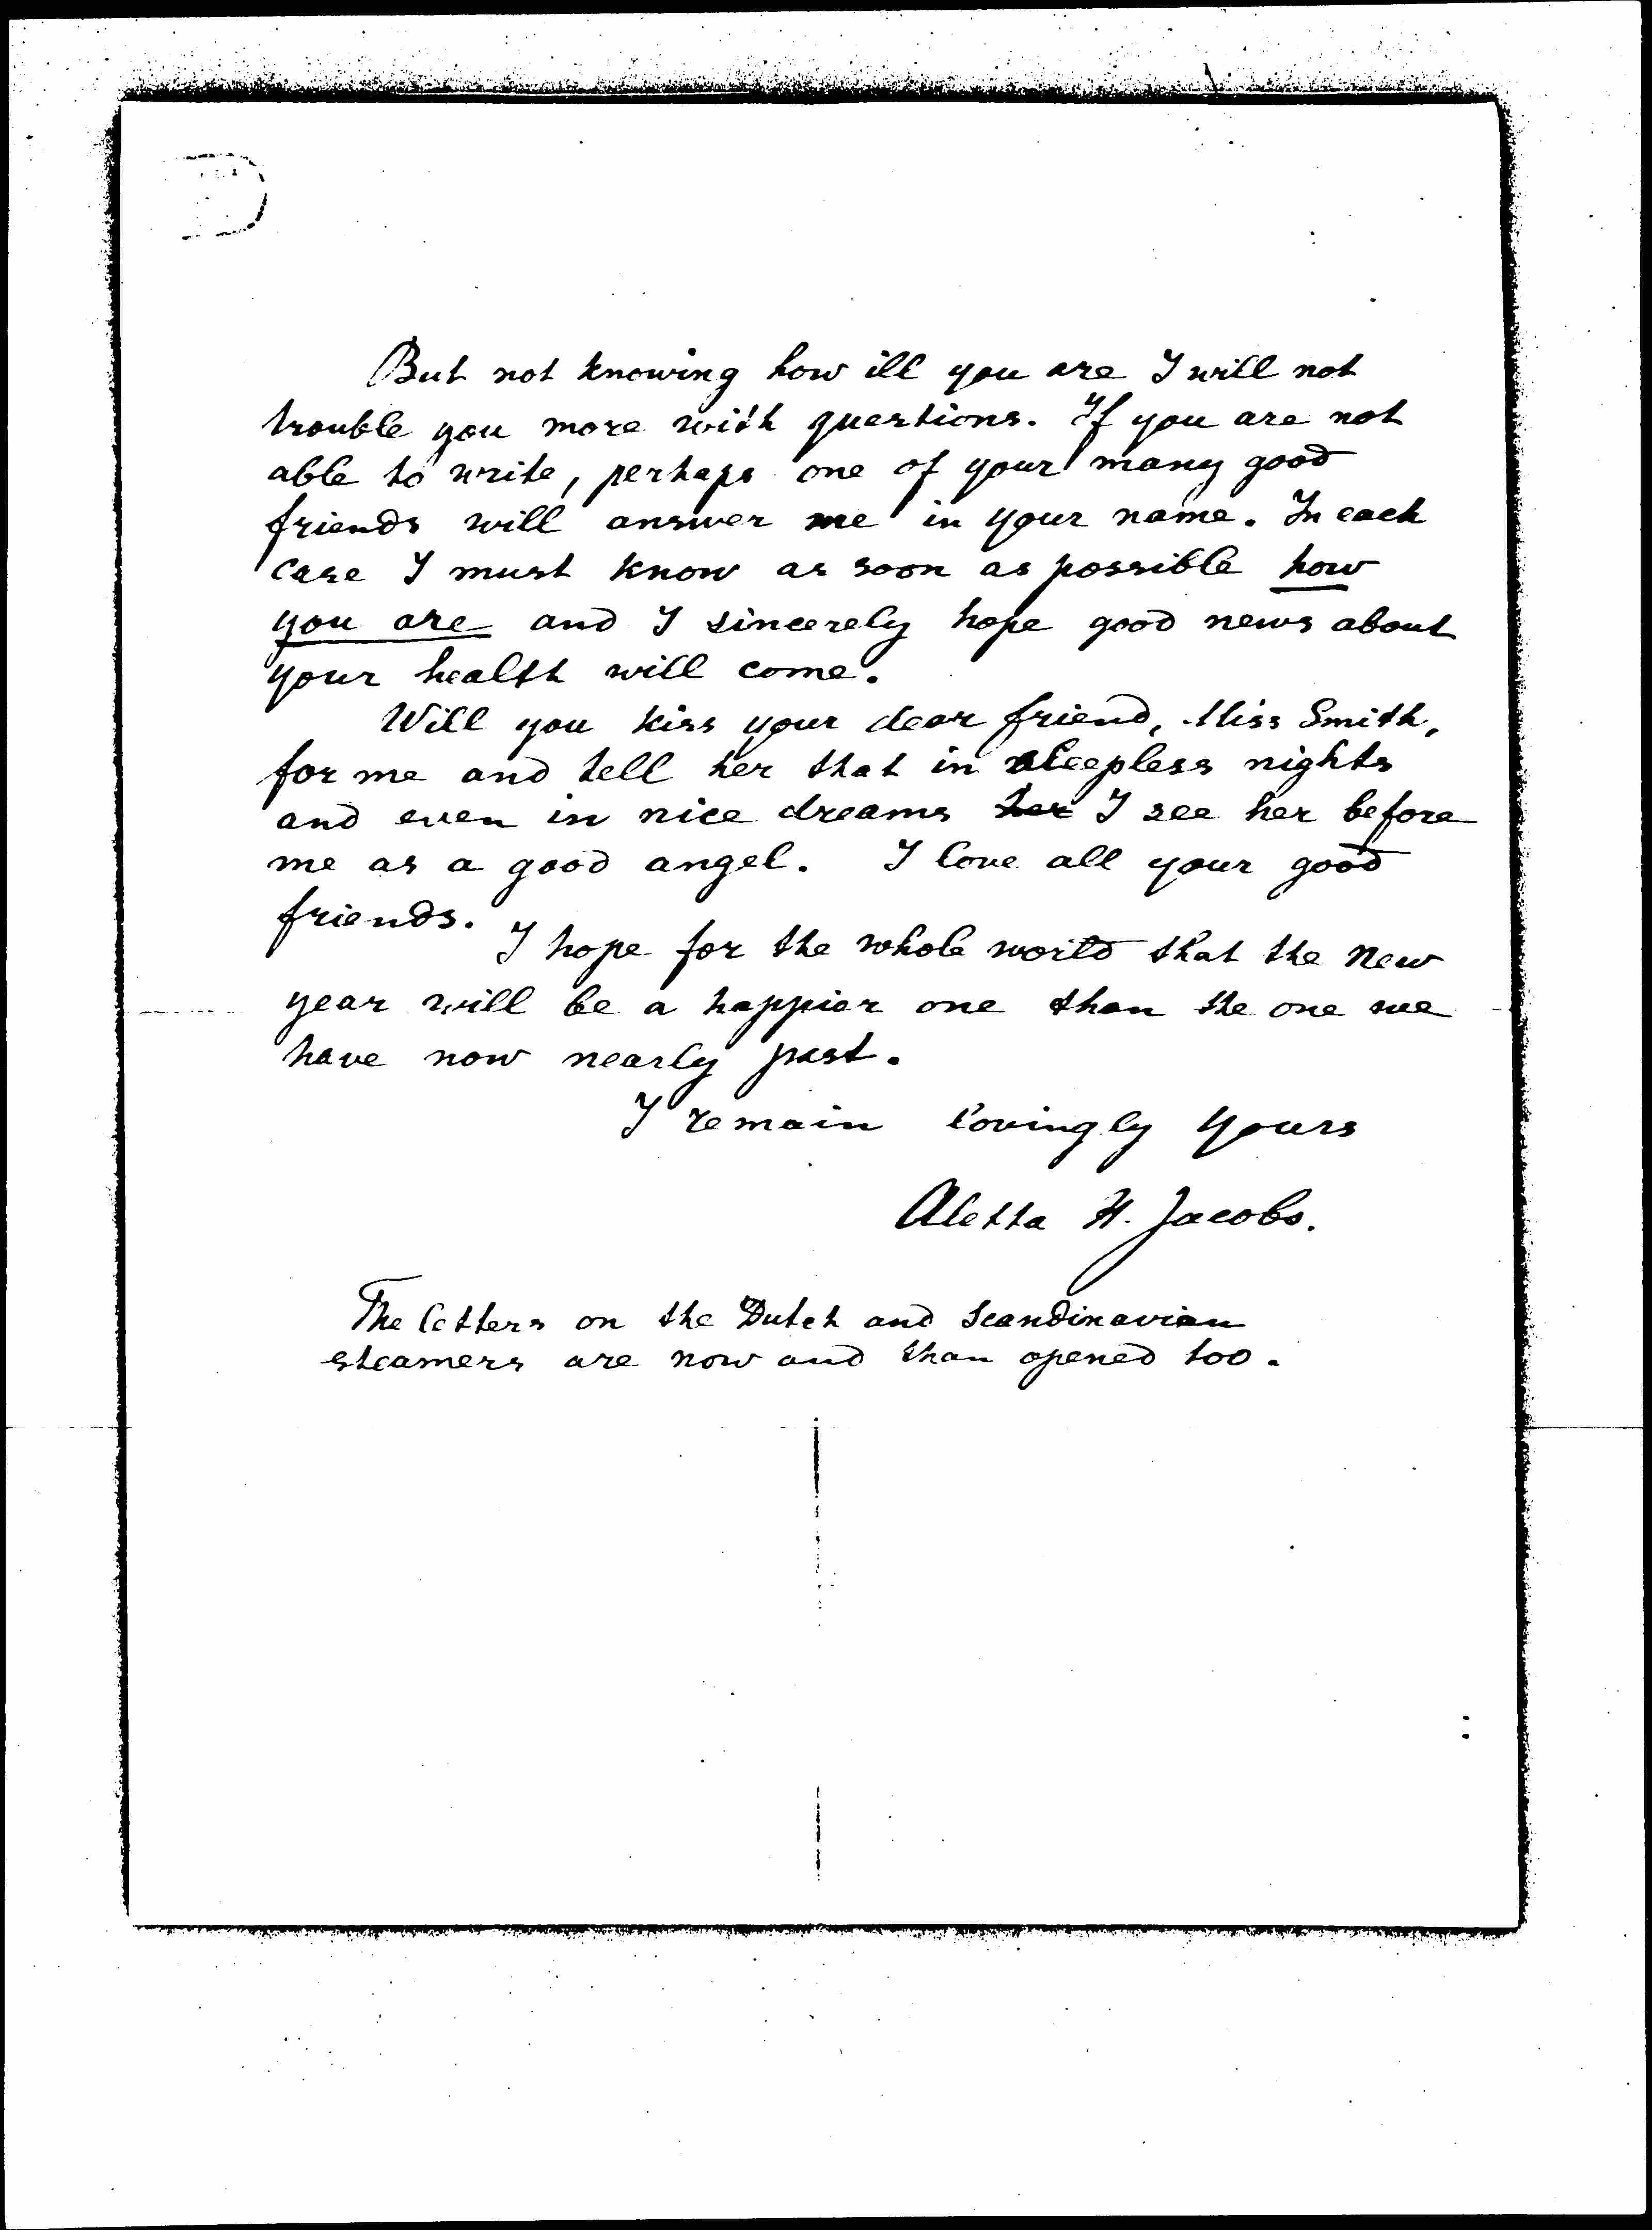 But not knowing how ill you are I will not
trouble you more with questions. If you are not
able to write, perhaps one of your many good
friends will answer me in your name. In each
case I must know as soon as possible how
you are and I sincerely hope good news about
your health will come.
Will you kiss your dear friend, Miss Smith,
for me and tell her that in sleepless nights
and even in nice dreams her I see her before
me as a good angel. I love all your good
friends.
I hope for the whole world that the new
year will be a happier one than the one we
have now nearly past.
I remain lovingly yours
Aletta H. Jacobs.
The letters on the Dutch and Scandinavian
steamers are now and than opened too.